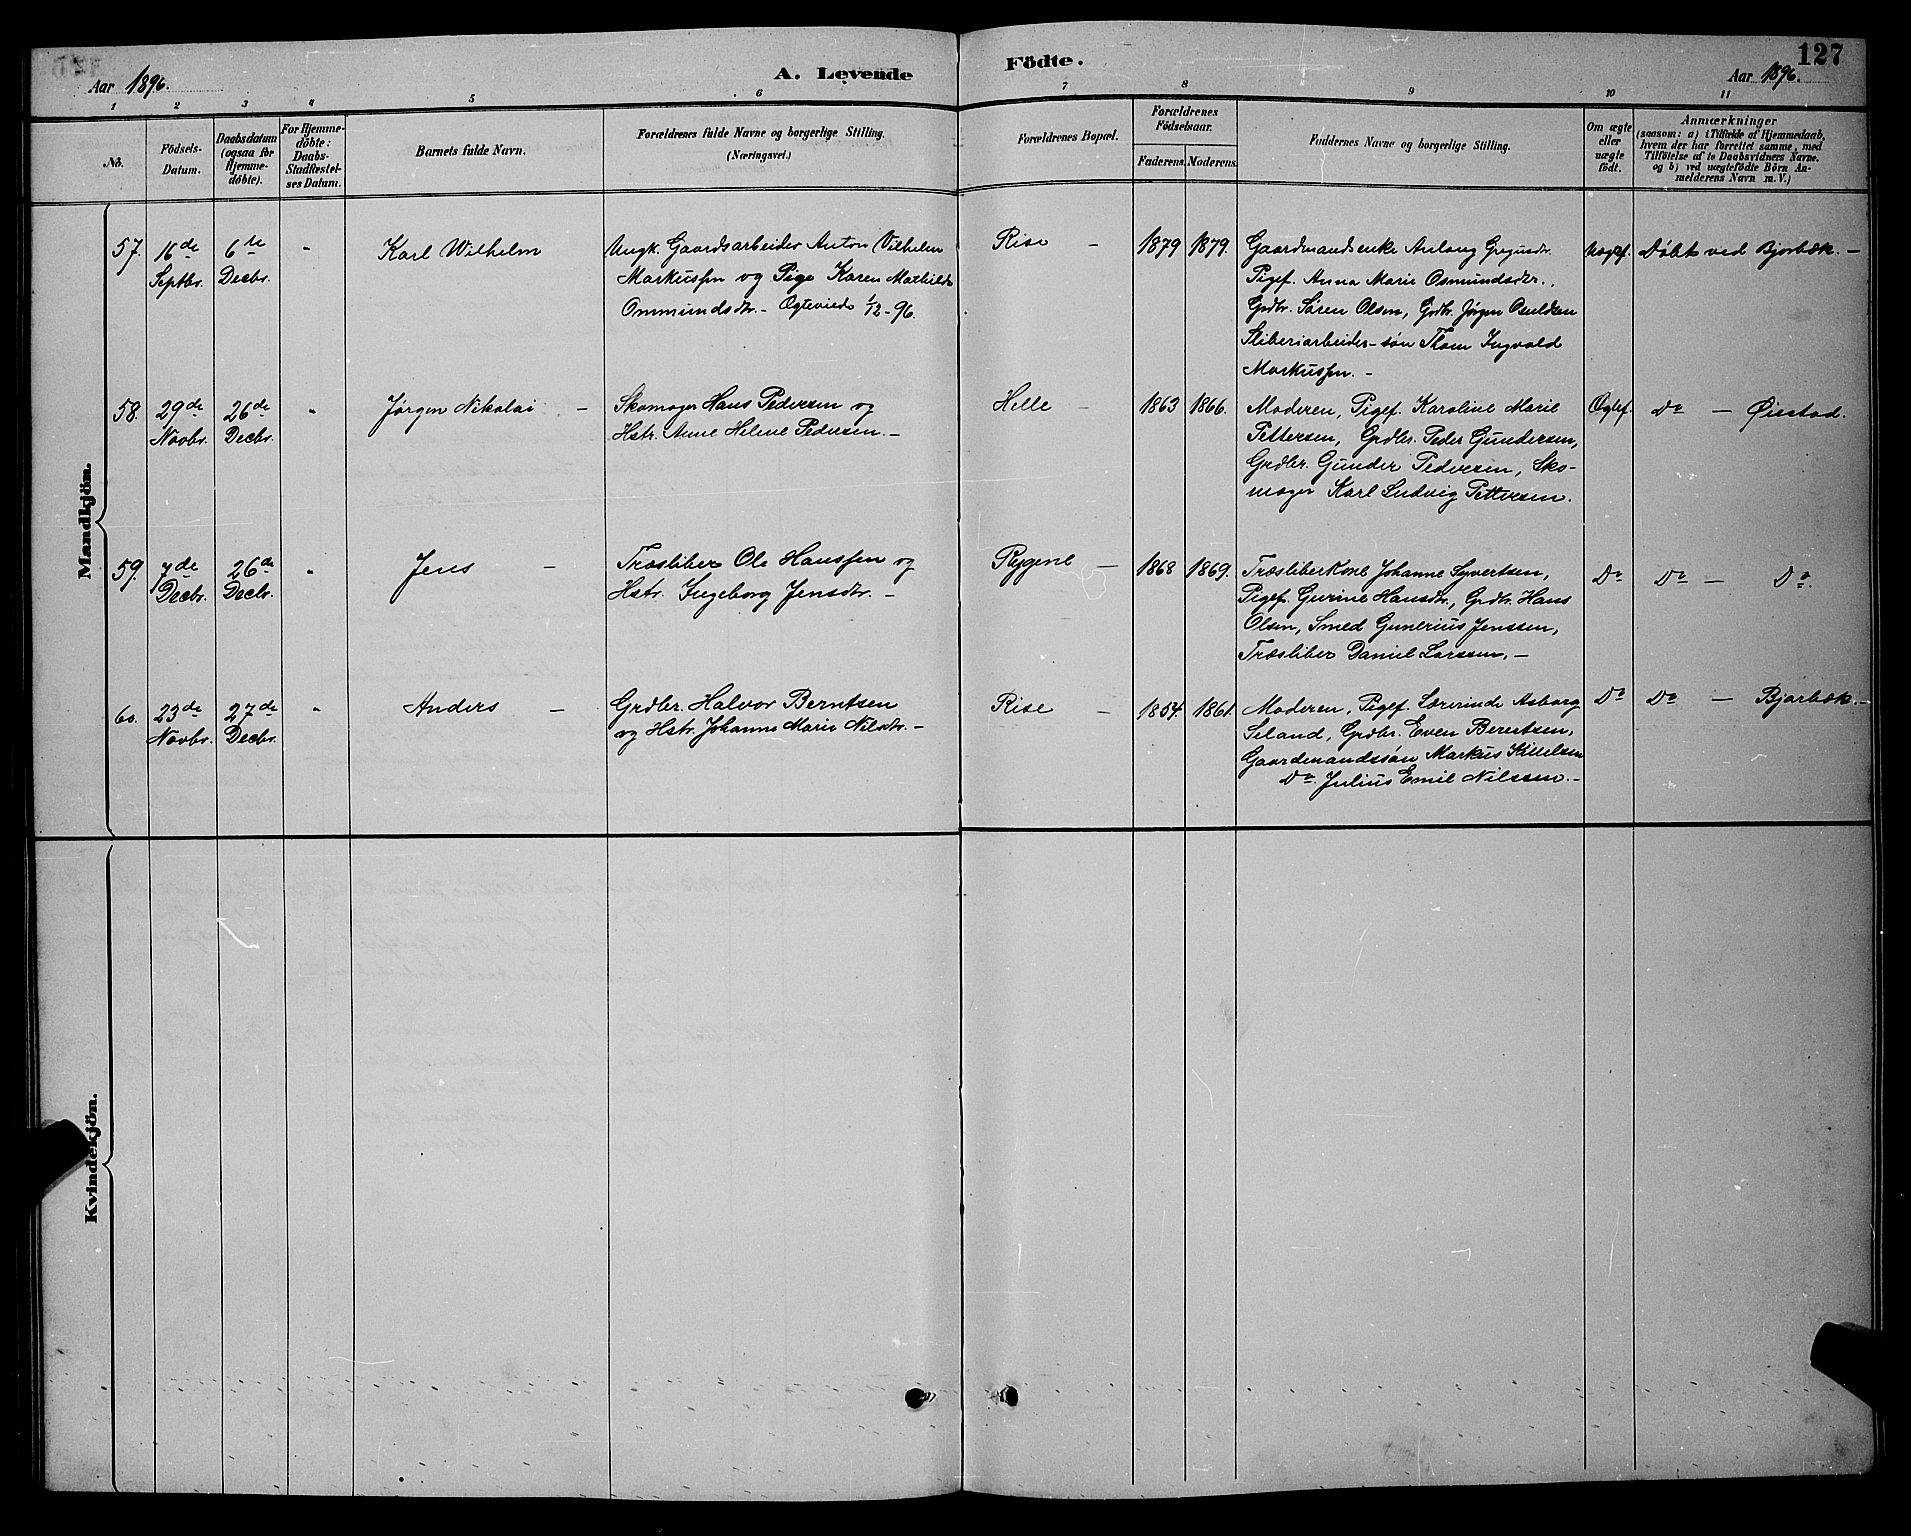 Aar 1896.
A. Levende Födte.
127
Aar 1896.
1 2 3 4 5 6 7 8 9 10 11
No.
Födsels-
Datum.
Daabsdatum
(ogsaa for
Hjemme-
döbte).
For Hjemme-
döbte:
Daabs-
Stadfæstel-
ses Datum.
Barnets fulde Navn.
Forældrenes fulde Navne og borgerlige Stilling.
(Næringsvei.)
Forældrenes Bopæl.
Forældrenes
Födselsaar.
Faderens. Moderens.
Faddernes Navne og borgerlige Stilling.
Om ægte
eller
uægte
födt.
Anmærkninger
(saasom: a) i Tilfælde af Hjemmedaab,
hvem der har forrettet samme, med
Tilföielse af to Daabsvidners Navne.
og b) ved uægtefödte Börn An-
melderens Navn m. V.)
Mandkjön.
57.
16de
Septbr.
6te
Decbr.
"
Karl Wilhelm
Ungk. Gaardsarbeider Anton Vilhelm
Markussen og Pige Karen Mathilde
Ommundsdtr. - Ægteviede 1/12-96.
Rise -
1879 1879.
Gaardmandsenke Anlaug Gregusdtr.
Pigef. Anna Marie Osmundsdtr.,
Grdbr. Søren Olsen, Grdbr. Jørgen Osuldsen
Sliberiarbeider-søn Thom Ingvald
Markussen. -
Uægtef.
Døbt ved Bjorbæk. -
58.
29de
Novbr.
26de
Decbr.
"
Jørgen Nikolai -
Skomager Hans Pedersen og
Hstr. Anne Helene Pedersen. -
Helle -
1863 1866.
Moderen, Pigef. Karoline Marie
Pettersen, Grdbr. Peder Gundersen,
Grdbr. Gunder Pedersen, Sko-
mager Karl Ludvig Pettersen.
Ægtef.
Do - Øiestad.
59.
7de
Decbr.
26de
Decbr.
"
Jens -
Træsliber Ole Hanssen og
Hstr. Ingeborg Jensdtr. -
Rygene -
1868 1869.
Træsliberkone Johanne Syvertsen,
Pigef. Gurine Hansdtr., Grdbr. Hans
Olsen, Smed Gunerius Jenssen,
Træsliber Daniel Larssen. -
Do
Do - Do.
60.
23de
Novbr.
27de
Decbr.
"
Anders -
Grdbr. Halvor Berntsen
og Hstr. Johanne Marie Nilsdtr. -
Rise -
1854. 1861.
Moderen, Pigef. Lærerinde Asborg
Seland, Grdbr. Even Berentsen,
Gaardmandssøn Markus Kittelsen
Do. Julius Emil Nilssen. -
Do
Do - Bjorbæk. -
Kvindekjön.